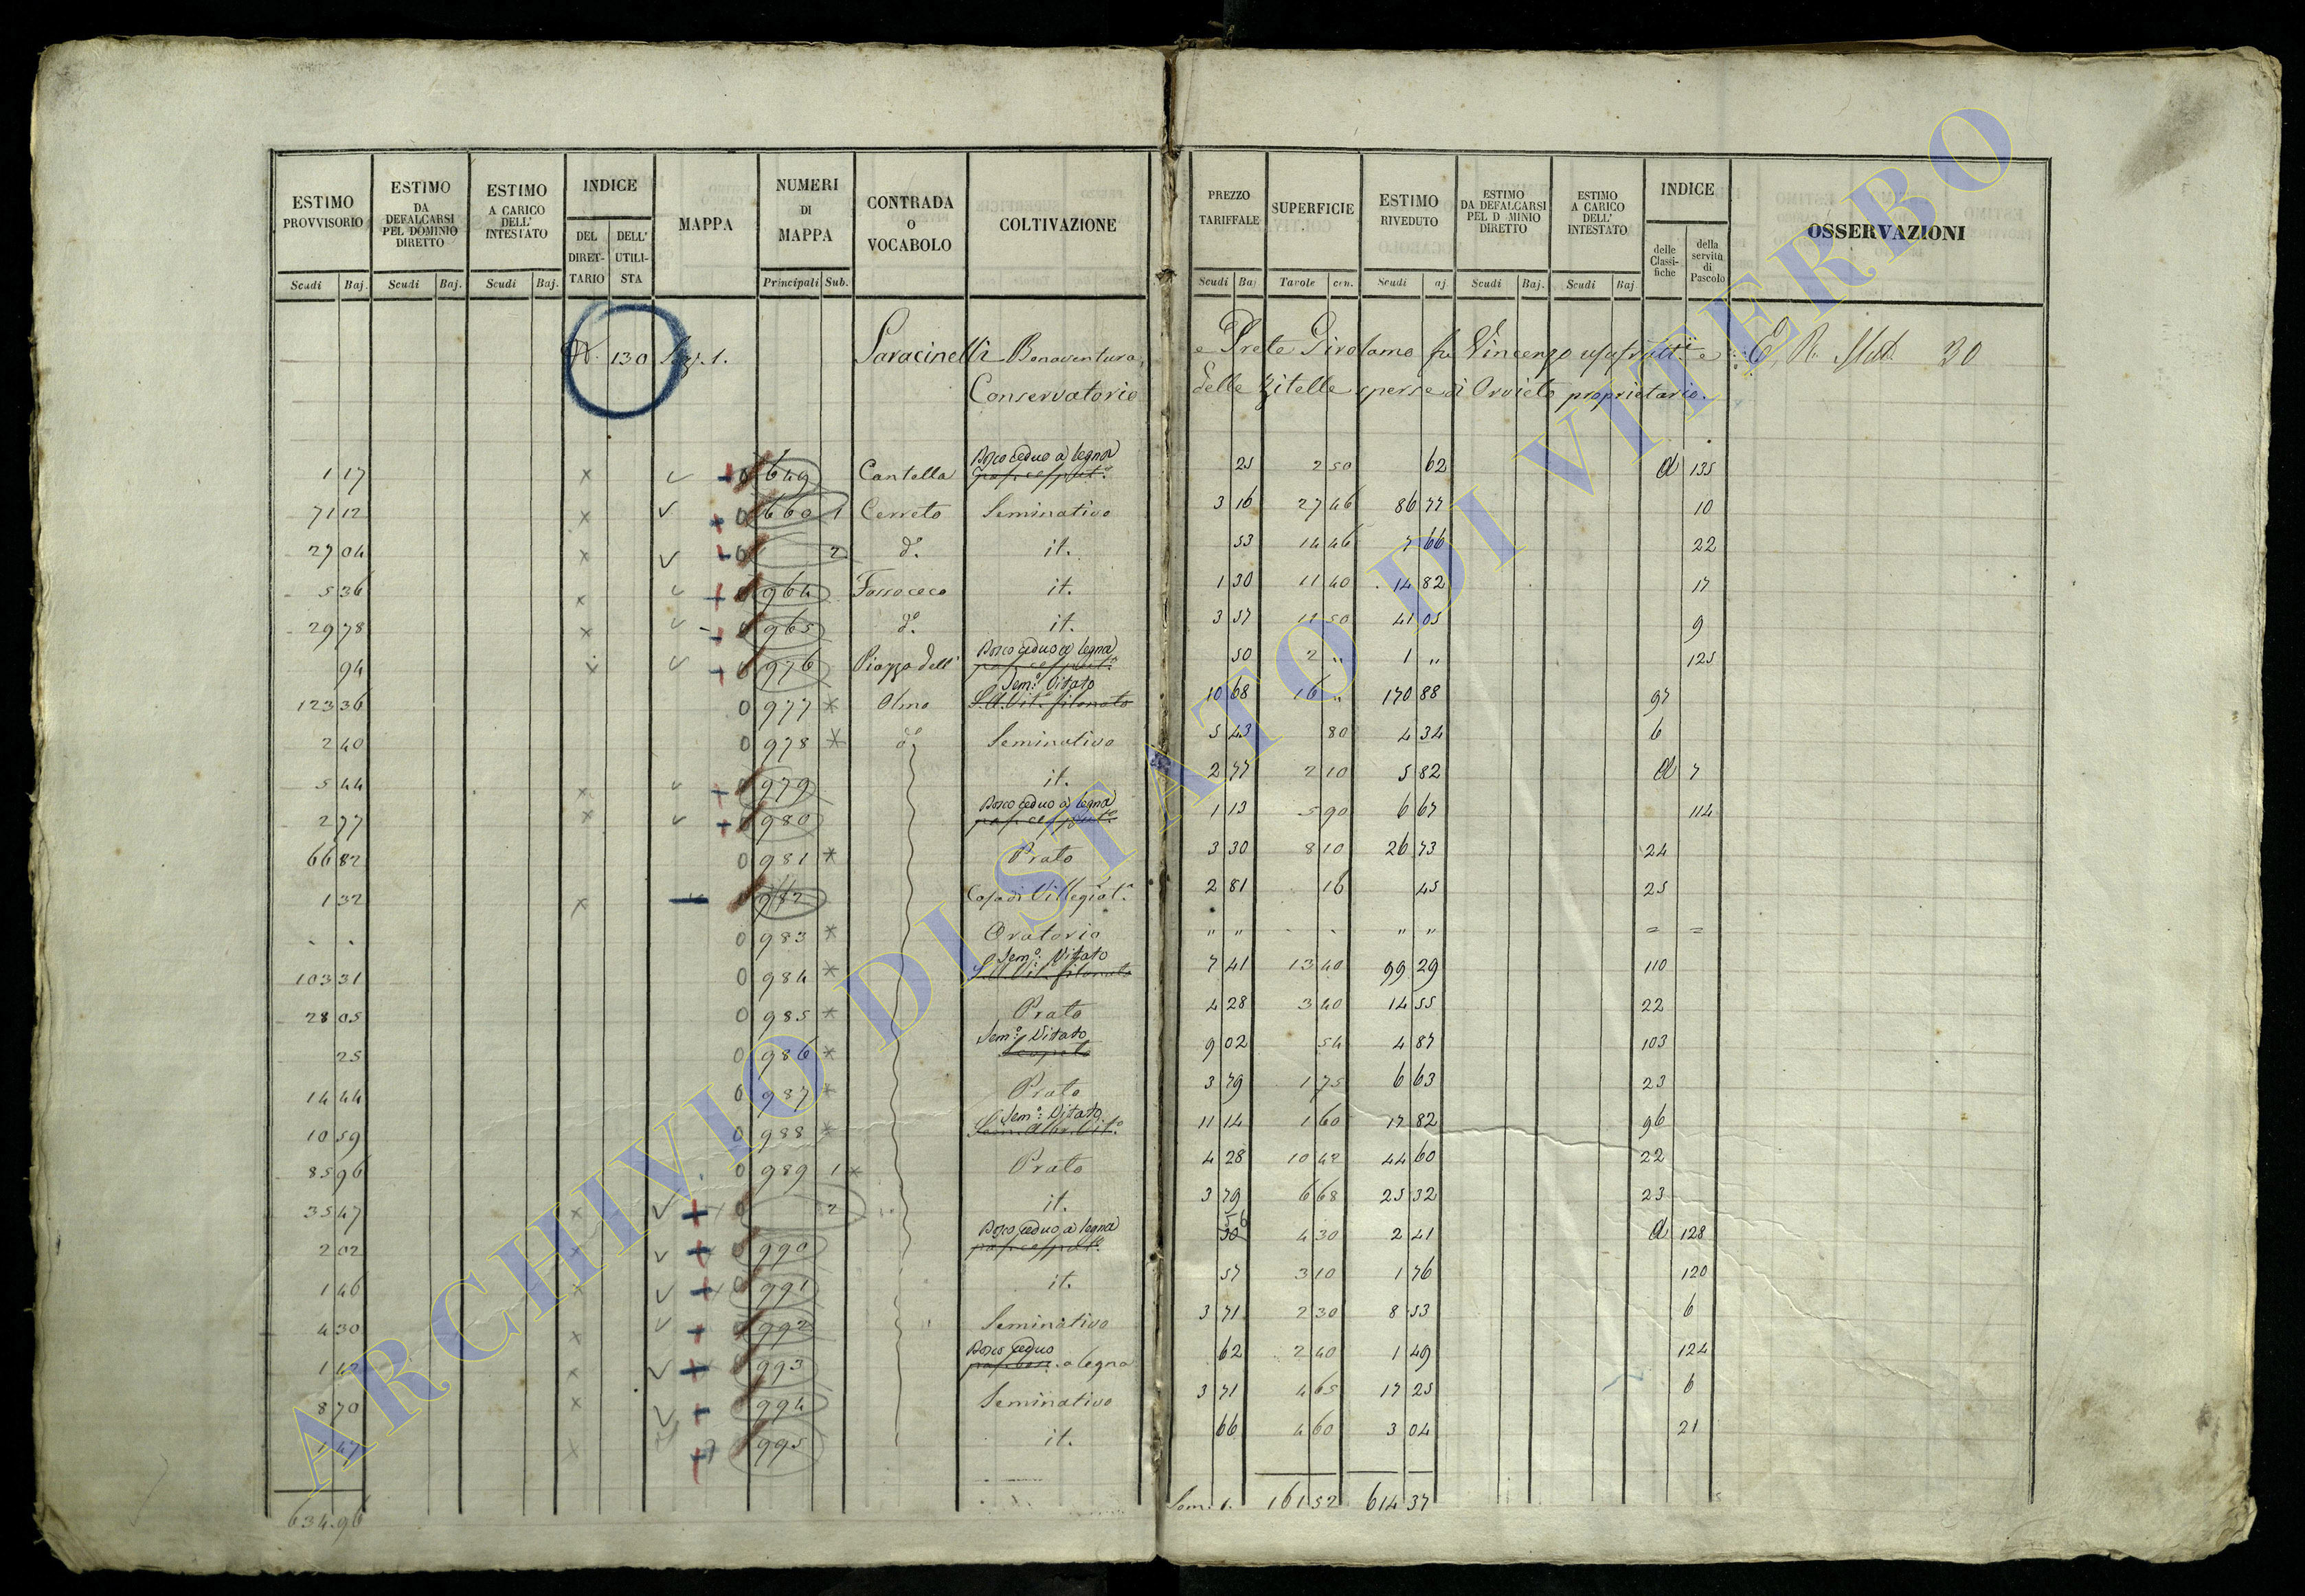 ESTIMO PROVVISORIO | ESTIMO DA DEFALCARSI PEL DOMINIO DIRETTO | ESTIMO A CARICO DELL' INTESTATO | INDICE | MAPPA | NUMERI DI MAPPA | CONTRADA O VOCABOLO | COLTIVAZIONE | PREZZO TARIFFALE | SUPERFICIE | ESTIMO RIVEDUTO | ESTIMO DA DEFALCARSI PEL D MINIO DIRETTO | ESTIMO A CARICO DELL' INTESTATO | INDICE | OSSERVAZIONI
DEL DIRETTARIO | DELL' UTILISTA | delle Classifiche | della servitù di Pascolo
Scudi | Baj. | Scudi | Baj. | Scudi | Baj. | Principali | Sub. | Scudi | Baj | Tavole | cen. | Scudi | aj | Scudi | Baj. | Scudi | Baj
N. 130 Sez. 1. Saracinelli Bonaventura, e Prete Girolamo fu Vincenzo usufrutti e E. R. Mat. 30
Conservatorio delle Zitelle sperse di Orvieto proprietario.
1 17 | x | 0 649 | Cantella | Bosco ceduo a legna | 25 | 2 50 | 62 | a 135
71 12 | x | 0 660 1 | Cerreto | Seminativo | 3 16 | 27 46 | 86 77 | 10
27 04 | x | 0 2 | d.o | it. | 53 | 14 46 | 7 66 | 22
5 36 | x | 0 964 | Fossoceco | it. | 1 30 | 11 40 | 14 82 | 17
29 78 | x | 0 965 | d.o | it. | 3 57 | 11 50 | 41 05 | 9
94 | x | 0 976 | Piazza dell' | Bosco ceduo a legna | 50 | 2 " | 1 " | 125
123 36 | 0 977 * | Olmo | Sem.o Vitato | 10 68 | 16 " | 170 88 | 97
2 40 | 0 978 * | d.o | Seminativo | 5 43 | 80 | 4 34 | 6
5 44 | x | 0 979 | it. | 2 77 | 2 10 | 5 82 | a 7
2 77 | x | 0 980 | Bosco ceduo a legna | 1 13 | 5 90 | 6 67 | 114
66 82 | 0 981 * | Prato | 3 30 | 8 10 | 26 73 | 24
1 32 | x | 0 982 | Casa di Villegiat.a | 2 81 | 16 | 45 | 25
0 983 * | Oratorio | " " | " " | = =
103 31 | 0 984 * | Sem.o Vitato | 7 41 | 13 40 | 99 29 | 110
28 05 | 0 985 * | Prato | 4 28 | 3 40 | 14 55 | 22
25 | 0 986 * | Sem.o Vitato | 9 02 | 54 | 4 87 | 103
14 44 | 0 987 * | Prato | 3 79 | 1 75 | 6 63 | 23
10 59 | 0 988 * | Sem.o Vitato | 11 14 | 1 60 | 17 82 | 96
85 96 | 0 989 1 * | Prato | 4 28 | 10 42 | 44 60 | 22
35 47 | x | 0 2 | it. | 3 79 | 6 68 | 25 32 | 23
2 02 | x | 0 990 | Bosco ceduo a legna | 56 | 4 30 | 2 41 | a 128
1 46 | x | 0 991 | it. | 57 | 3 10 | 1 76 | 120
4 30 | x | 0 992 | Seminativo | 3 71 | 2 30 | 8 53 | 6
x | 0 993 | Bosco ceduo a legna | 62 | 2 40 | 1 49 | 124
8 70 | x | 994 | Seminativo | 3 71 | 4 65 | 17 25 | 6
1 47 | x | 995 | it. | 66 | 4 60 | 3 04 | 21
634.96 | Som. 1. | 161 52 | 614 37
ARCHIVIO DI STATO DI VITERBO